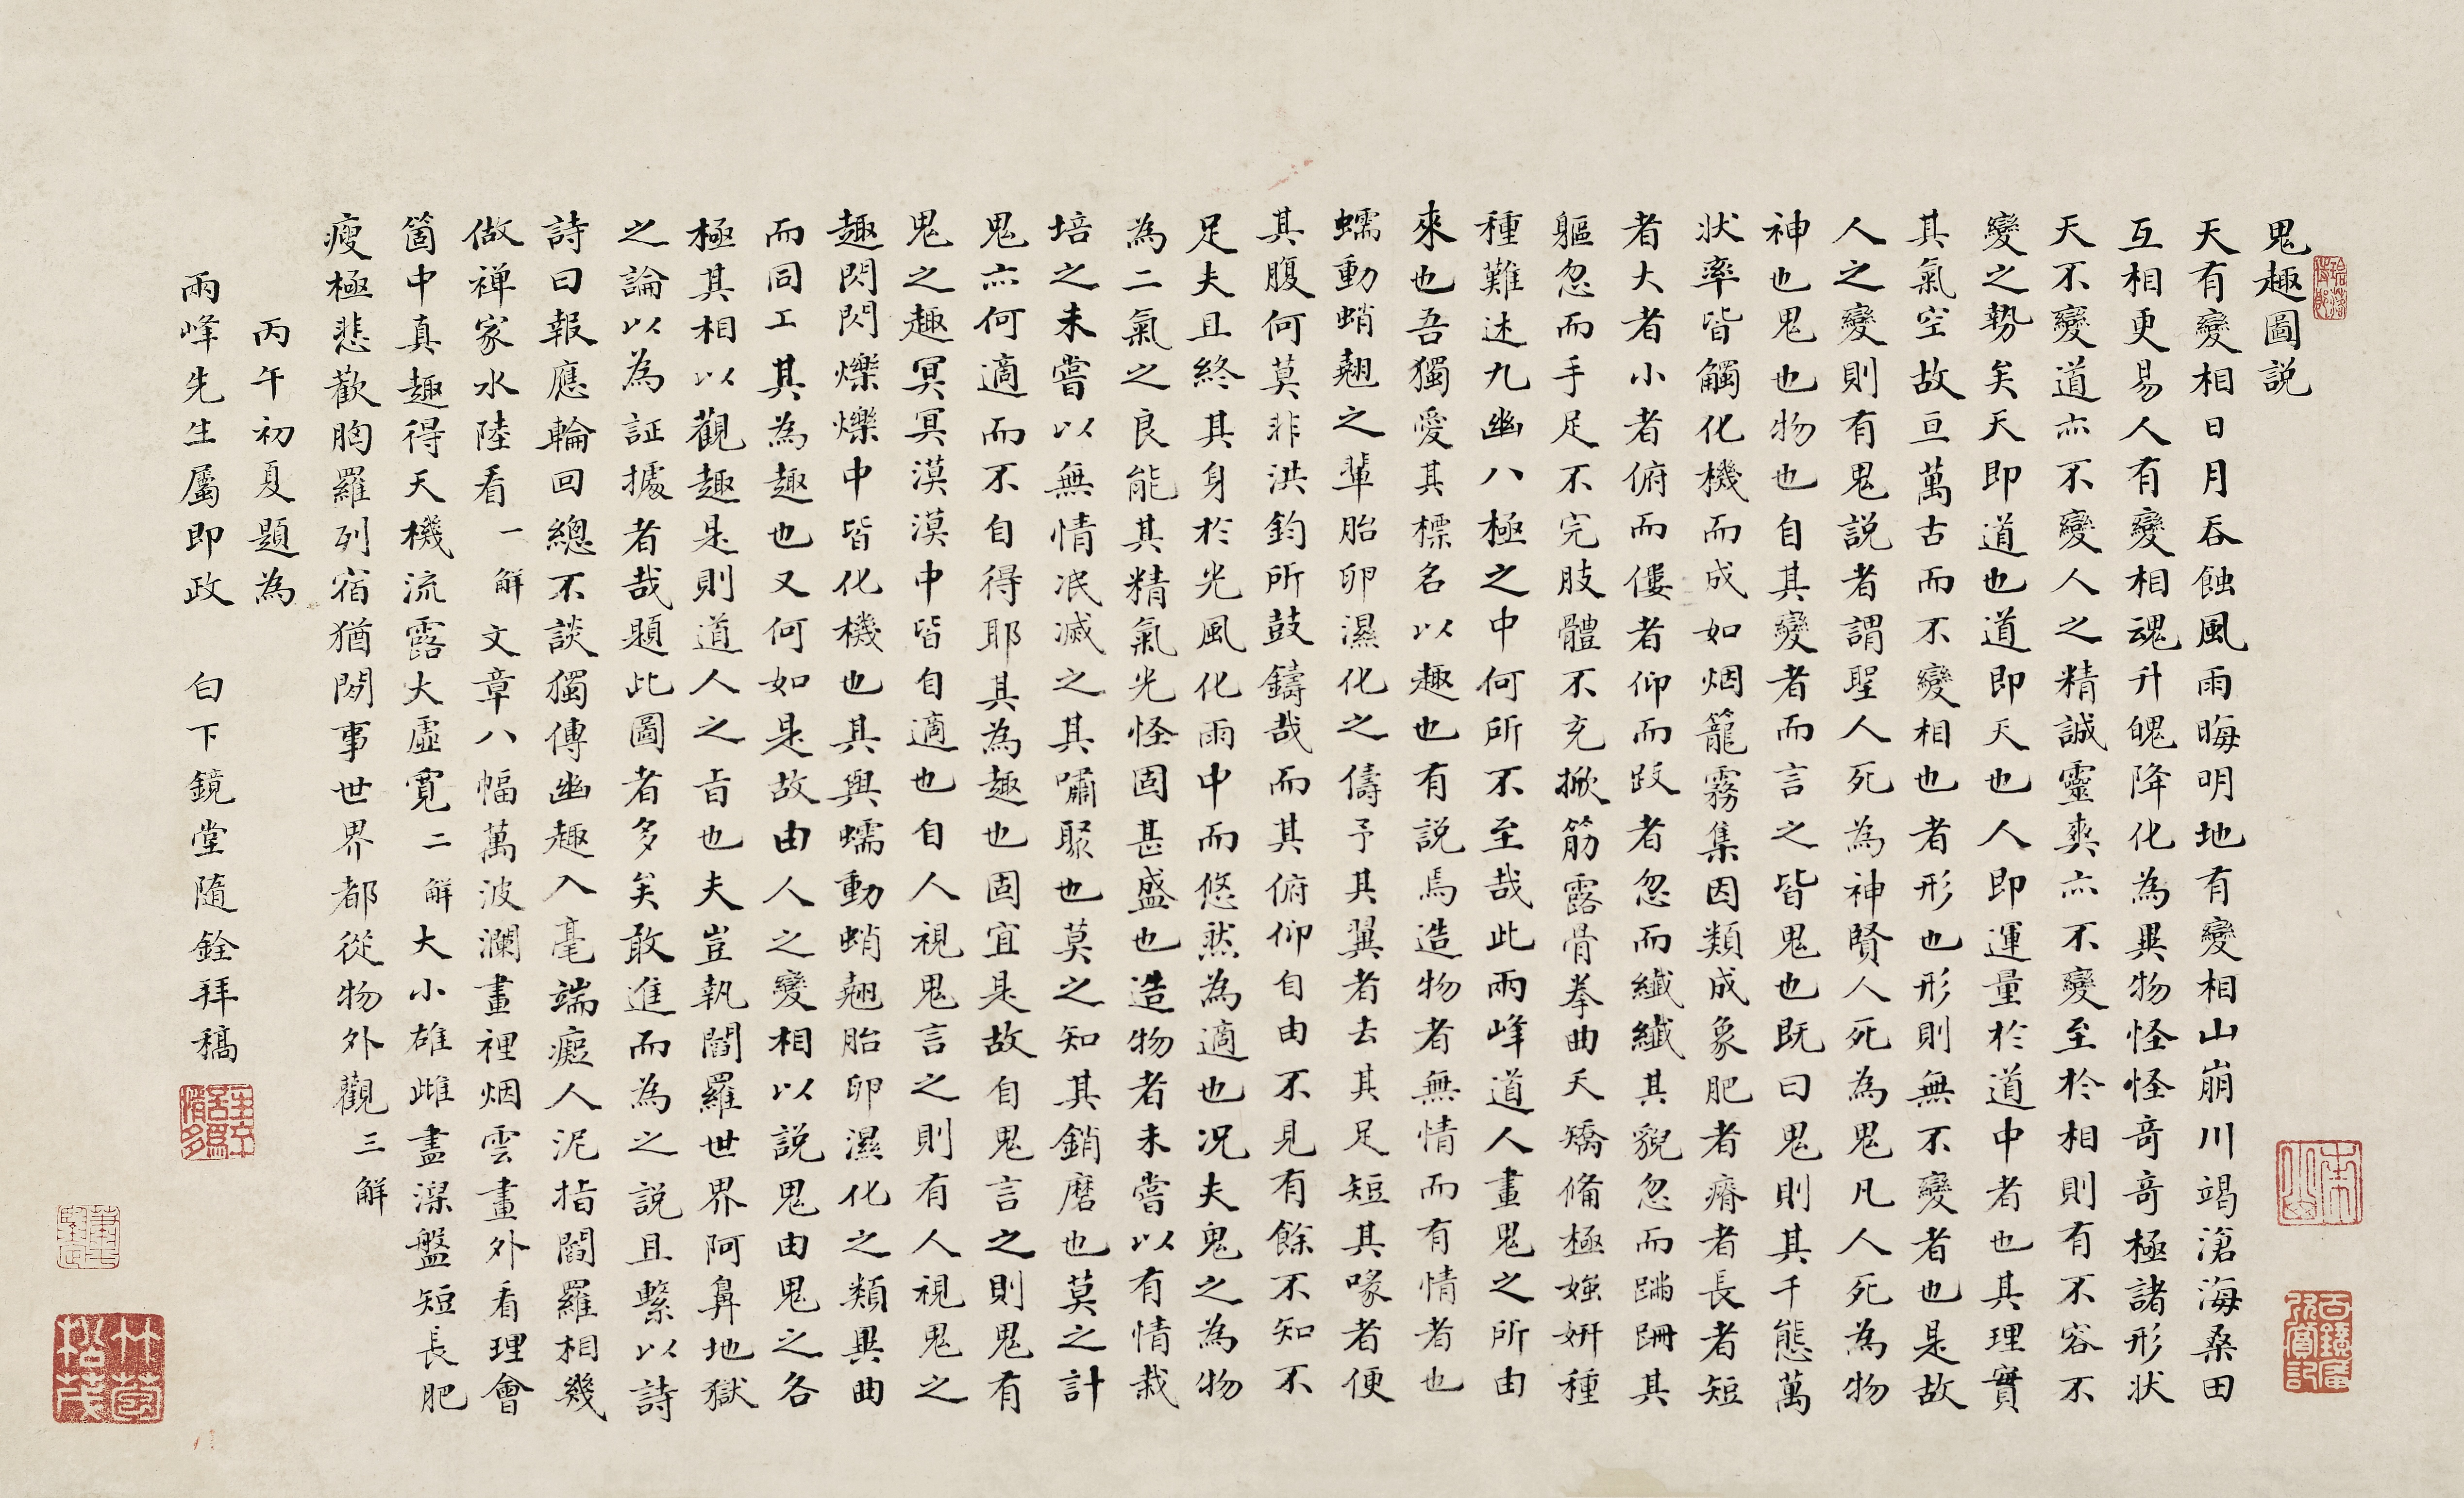 鬼趣圖説
天有變相日月吞蝕風雨晦明地有變相山崩川竭滄海桑田
互相更易人有變相魂升魄降化為異物怪怪奇奇極諸形状
天不變道亦不變人之精誠靈爽亦不變至於相則有不容不
變之勢矣天即道也道即天也人即運量於道中者也其理實
其氣空故亘萬古而不變相也者形也形則無不變者也是故
人之變則有鬼説者謂聖人死為神賢人死為鬼凡人死為物
神也鬼也物也自其變者而言之皆鬼也既曰鬼則其千態萬
状率皆觸化機而成如烟籠霧集因類成象肥者瘠者長者短
者大者小者俯而僂者仰而跂者忽而纖纖其貌忽而蹣跚其
軀忽而手足不完肢體不充掀筋露骨拳曲夭矯脩極媸妍種
種難述九幽八極之中何所不至哉此兩峰道人畫鬼之所由
來也吾獨愛其標名以趣也有説焉造物者無情而有情者也
蠕動蛸翹之輩胎卵濕化之儔予其翼者去其足短其喙者便
其腹何莫非洪鈞所鼓鑄哉而其俯仰自由不見有餘不知不
足夫且終其身於光風化雨中而悠然為適也况夫鬼之為物
為二氣之良能其精氣光怪固甚盛也造物者未嘗以有情栽
培之未嘗以無情泯滅之其嘯聚也莫之知其銷磨也莫之計
鬼亦何適而不自得耶其為趣也固宜是故自鬼言之則鬼有
鬼之趣冥冥漠漠中皆自適也自人視鬼言之則有人視鬼之
趣閃閃爍爍中皆化機也其與蠕動蛸翹胎卵濕化之類異曲
而同工其為趣也又何如是故由人之變相以説鬼由鬼之各
極其相以觀趣是則道人之旨也夫豈執閻羅世界阿鼻地獄
之論以為証據者哉題此圖者多矣敢進而為之説且繫以詩
詩曰報應輪回總不談獨傳幽趣入毫端癡人泥指閻羅相幾
做禅家水陸看 一解 文章八幅萬波瀾畫裡烟雲畫外看理會
箇中真趣得天機流露大虛寬 二解 大小雄雌盡澟盤短長肥
瘦極悲歡胸羅列宿猶閒事世界都從物外觀 三解
丙午初夏題為
兩峰先生屬即政 白下鏡堂隨銓拜稿